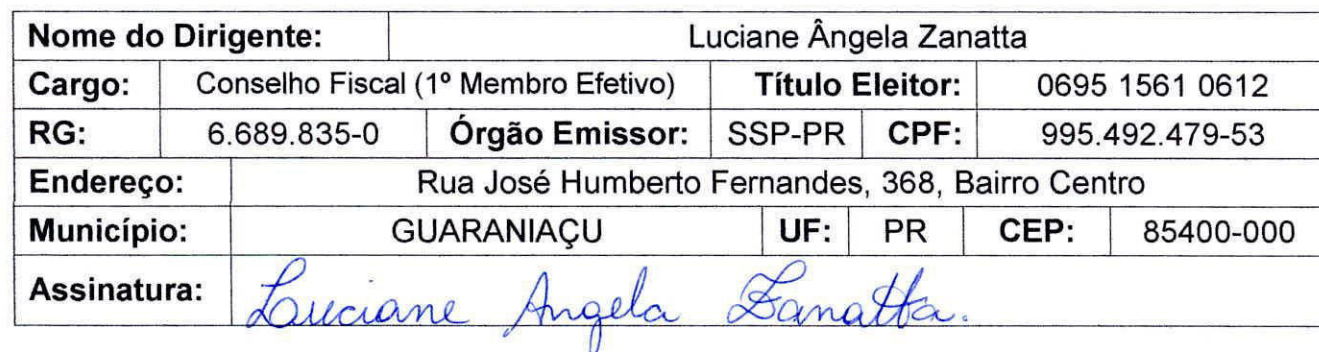 Nome do Dirigente: Luciane Ângela Zanatta
Cargo: Conselho Fiscal (1º Membro Efetivo) Título Eleitor: 0695 1561 0612
RG: 6.689.835-0 Órgão Emissor: SSP-PR CPF: 995.492.479-53
Endereço: Rua José Humberto Fernandes, 368, Bairro Centro
Município: GUARANIAÇU UF: PR CEP: 85400-000
Assinatura: Luciane Angela Zanatta.